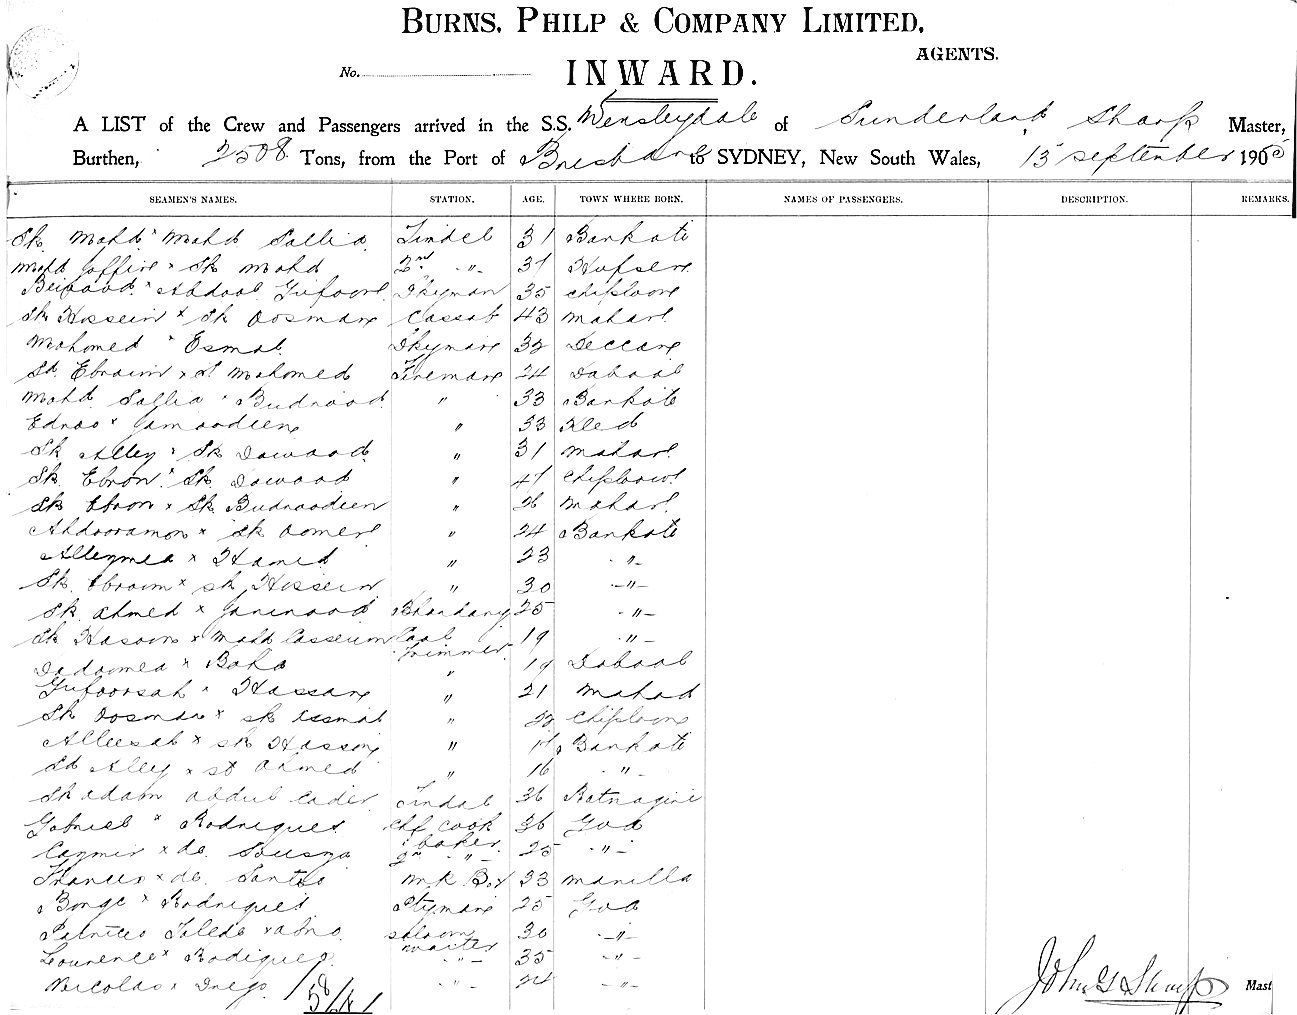 BURNS, PHILP & COMPANY LIMITED,
AGENTS.
No.
INWARD.
A LIST of the Crew and Passengers arrived in the S.S. Wensleydale of Sunderland, Sharp Master,
Burthen, 2508 Tons, from the Port of Brisbane to SYDNEY, New South Wales, 15 September 1905
SEAMEN'S NAMES. STATION. AGE. TOWN WHERE BORN. NAMES OF PASSENGERS. DESCRIPTION. REMARKS.
Sk. Mahd x Mahd Sallia Tindel 31 Bankote
Mahd Joffire x Sk Mahd 2nd -"- 37
Abdool Gufoor 35 Chiploon
Sk Hossein x Sk Oosman Cassab 43 Mahar
Mahomed x Esmal 32 Deccan
Sd. Ebraim x Sd Mahomed Fireman 24 Dabool
Mahd Sallia x Budrood " 33 Bankote
x Jamaodeen " 33
Sk Alley x Sk Dawood " 31 Mahar
Sk. x Sk Dawood " 47 Chiploon
Sk x Sk Budroodeen " 26 Mahar
Abdooramon x Sk Oomer " 24 Bankote
Alleymea x Hamed " 23 -"-
Sk. Ebraim x Sk Hossein " 30 -"-
Sk. Ahmed x Bhandary 25 -"-
Sk Hasson x Mahd Casseum Coal Trimmer 19 -"-
Dadamea x Baha " 19 Dabool
Gufoorsah x Hassan " 21 Mahad
Sk Oosman x Sk Essmal " 22 Chiploon
Alleesab x Sk " Bankote
Sd Alley x Sd Ahmed " 16 -"-
Sk adam abdul Cader Tindal 36 Ratnagiri
Gabriel x Rodrigues Chf Cook 36 Goa
x de Souza & baker 2nd -"- 25 -"-
x de Santos 23 Manilla
Borge x Rodrigues 25 Goa
Toledo x saloon waiter 30 -"-
Lourence x Rodigues -"- 35 -"-
Nicolao x Diego -"- 24 -"-
58/41
John G Sharp Mast